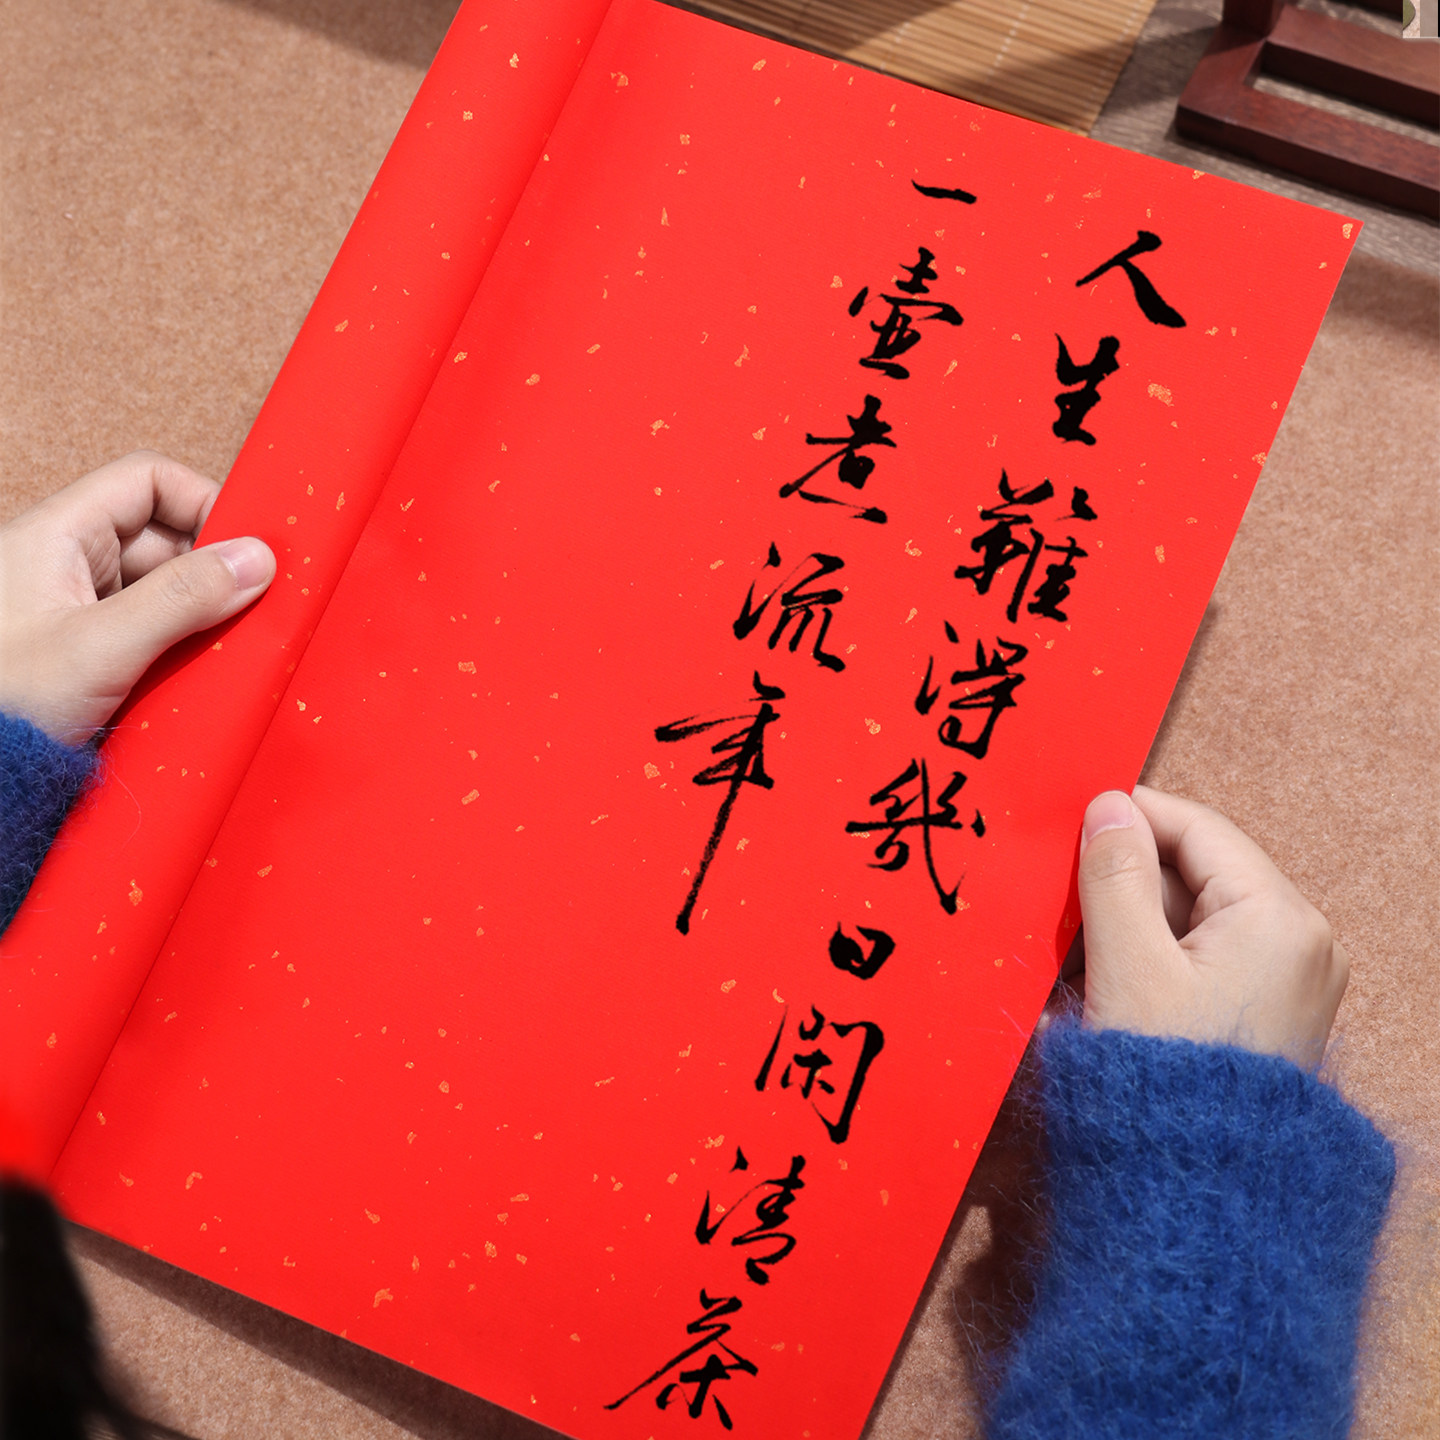 人生難得幾日閑清茶
一壺煮流年